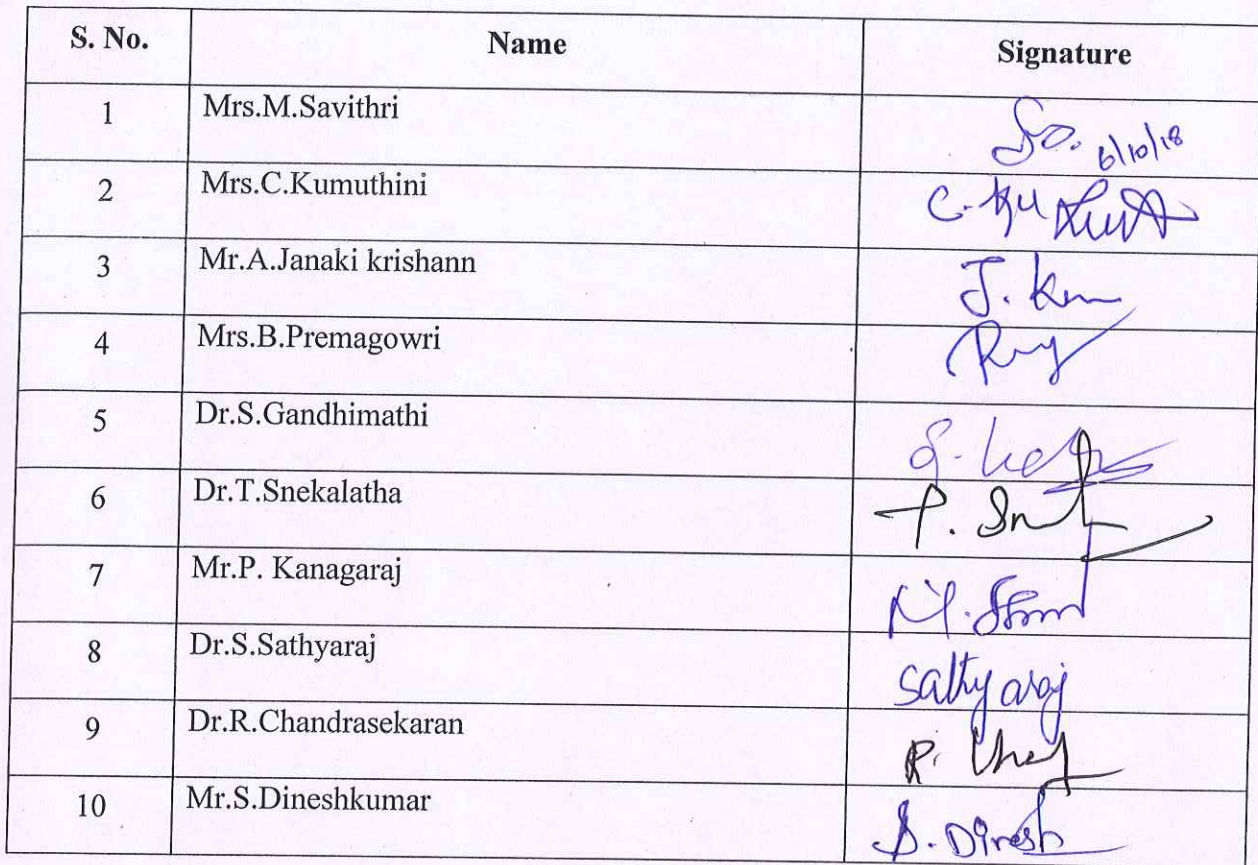 S. No. Name Signature
1 Mrs.M.Savithri 6/10/18
2 Mrs.C.Kumuthini C.
3 Mr.A.Janaki krishann J.
4 Mrs.B.Premagowri
5 Dr.S.Gandhimathi
6 Dr.T.Snekalatha
7 Mr.P. Kanagaraj
8 Dr.S.Sathyaraj Sathyaraj
9 Dr.R.Chandrasekaran R.
10 Mr.S.Dineshkumar S. Dinesh